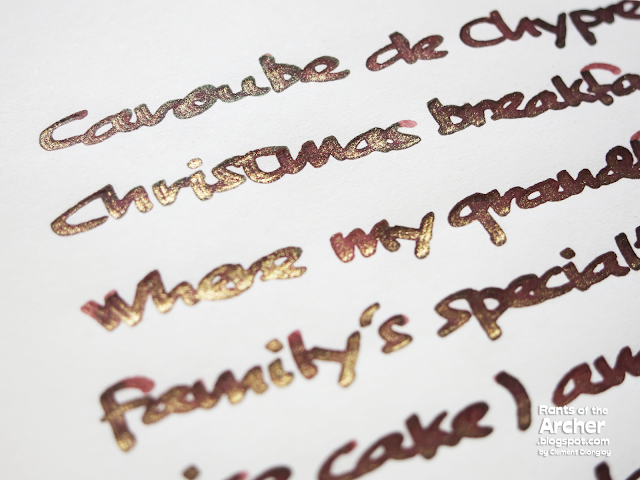 Caroube de Chypre
Christmas breakfa
Where my grand
family's specialt
cake ) an
Rants of the
Archer
.blogspot.com
by Clement Dionglay